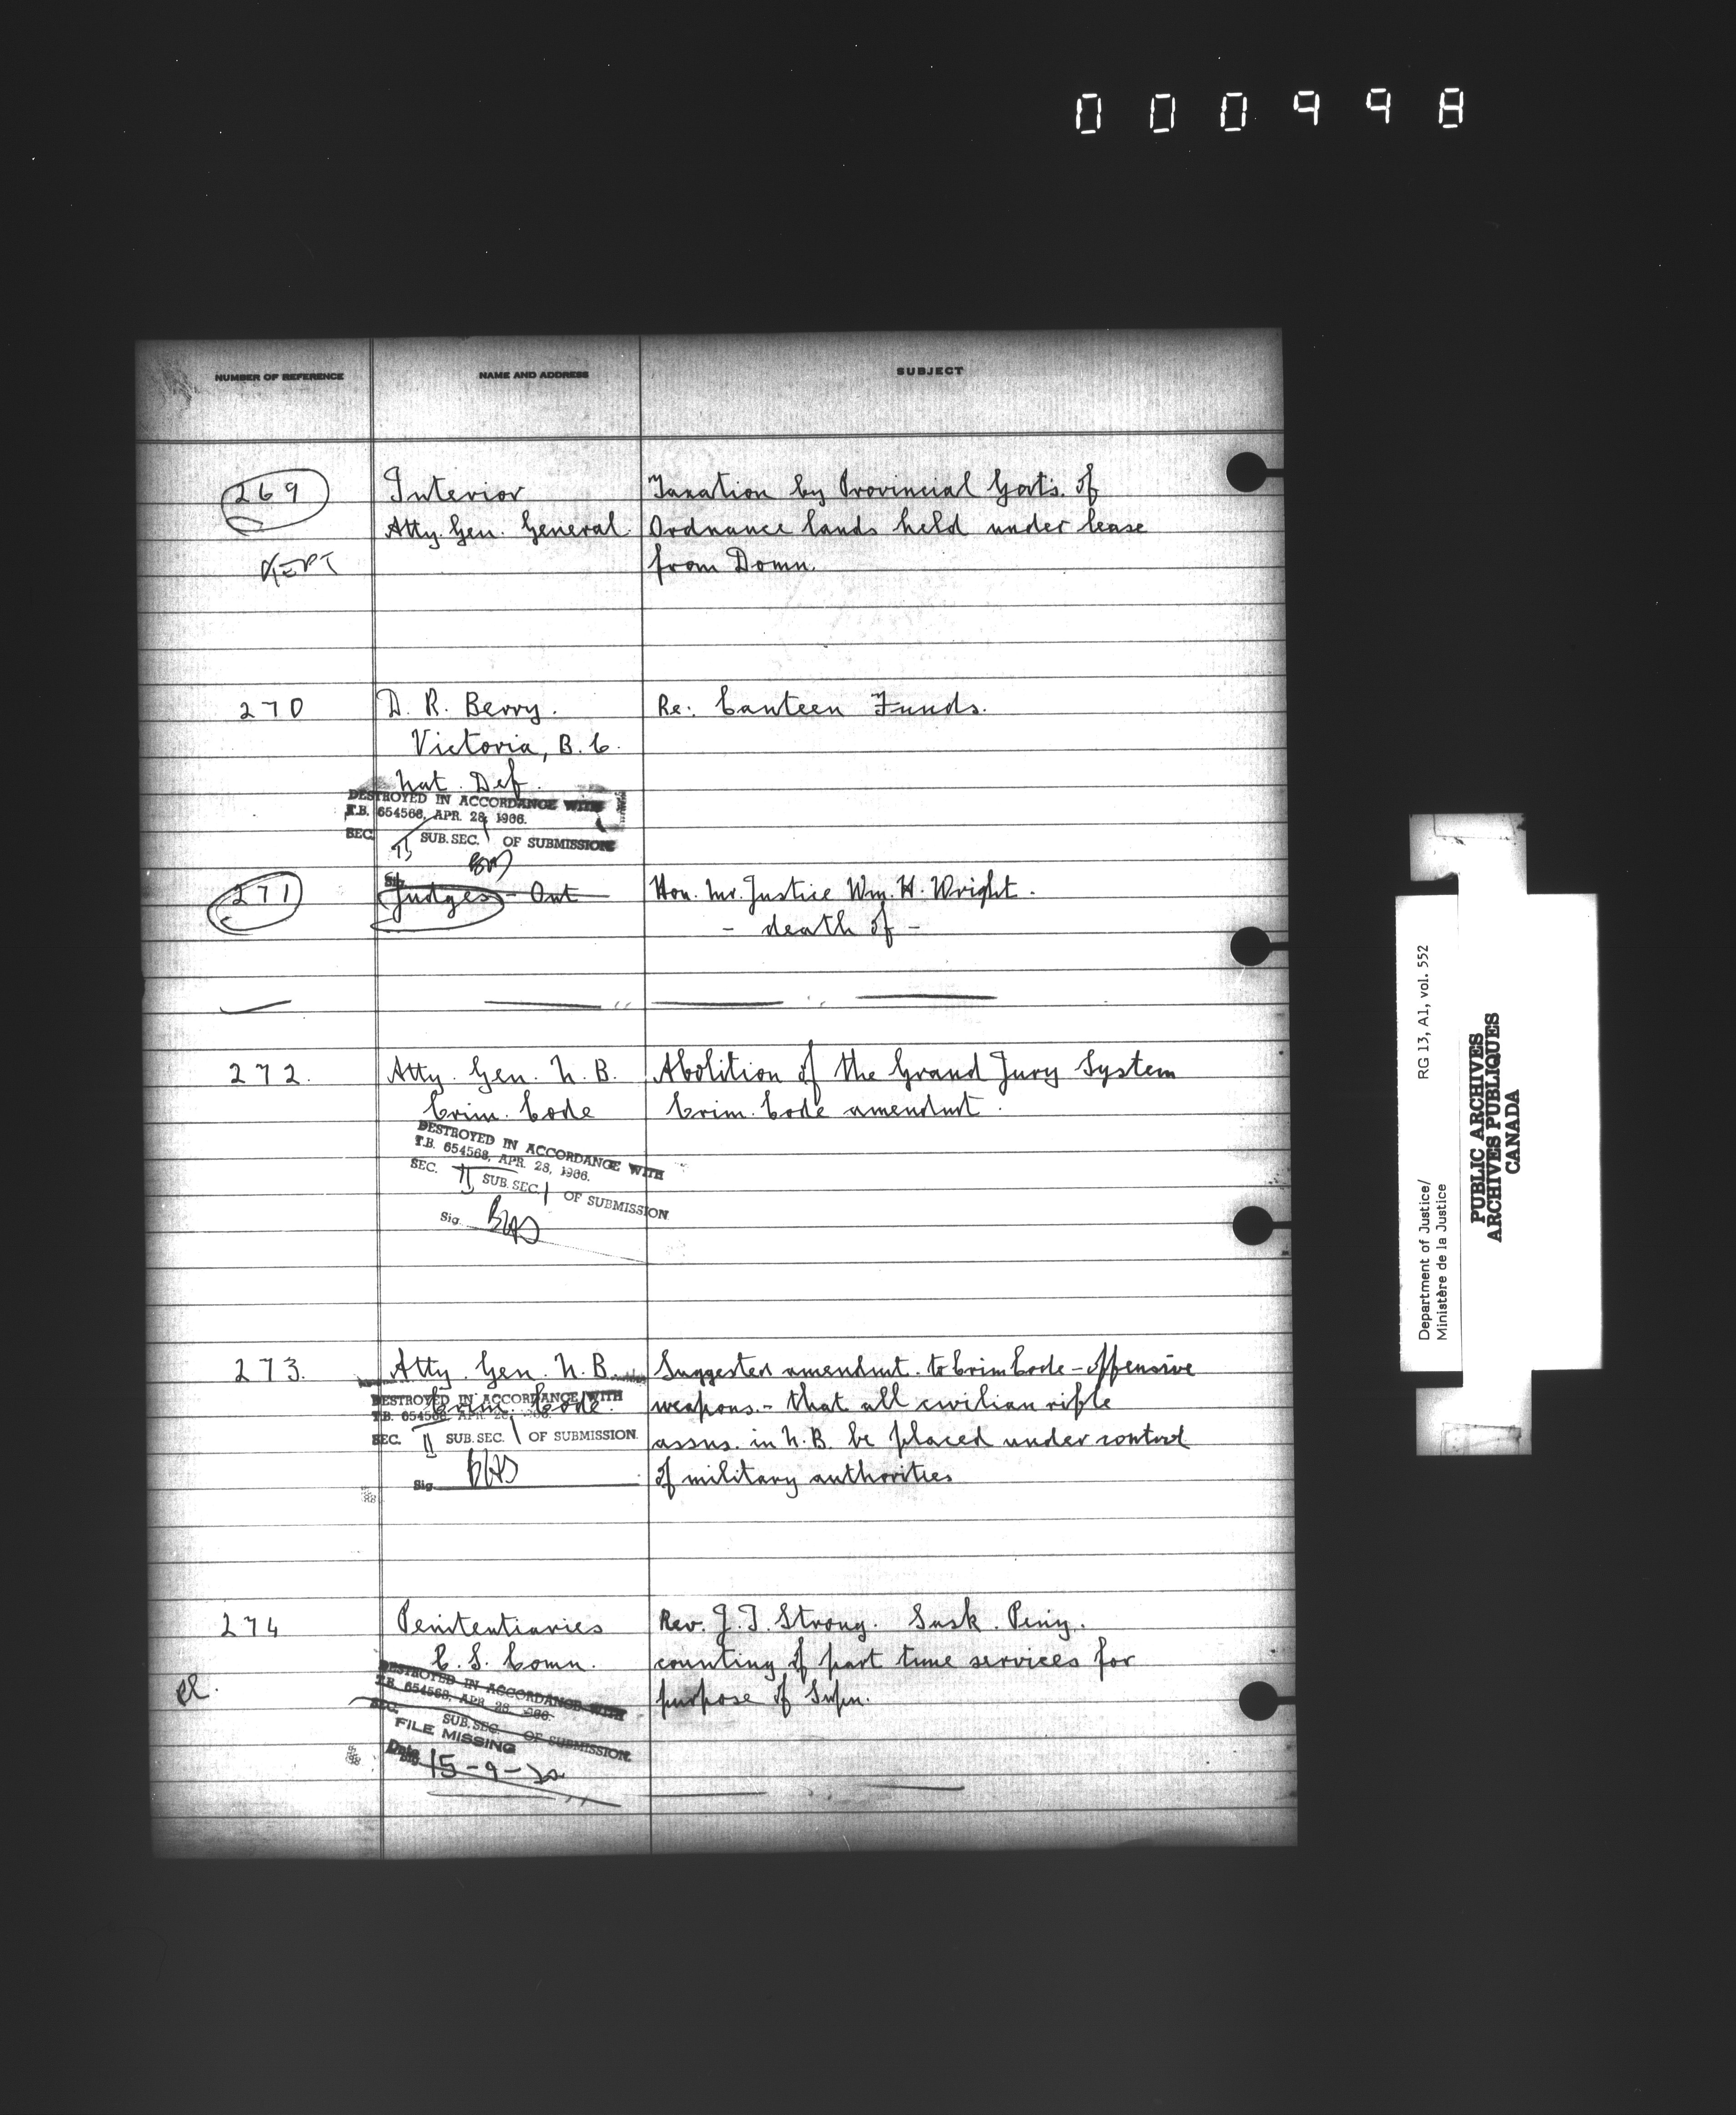 000998
NUMBER OF REFERENCE
NAME AND ADDRESS
SUBJECT
269
Interior
Taxation by Provincial Govts. of
Atty. Gen. General.
Ordnance lands held under lease
KEPT
from Domn.
270
D. R. Berry.
Re: Canteen Funds.
Victoria, B.C.
Nat. Def.
DESTROYED IN ACCORDANCE WITH
T.B. 654568, APR. 28, 1966.
SEC. II SUB. SEC. 1 OF SUBMISSION
Sig.
271
Judges - Ont
Hon. Mr. Justice Wm. H. Wright.
- death of -
272.
Atty. Gen. N.B.
Abolition of the Grand Jury System
Crim. Code
Crim. Code amendmt.
DESTROYED IN ACCORDANCE WITH
T.B. 654568, APR. 28, 1966.
SEC. II SUB. SEC. 1 OF SUBMISSION
Sig.
273.
Atty. Gen. N.B.
Suggested amendmt. to Crim Code - offensive
Crim. Code.
weapons. - that all civilian rifle
DESTROYED IN ACCORDANCE WITH
T.B. 654568, APR. 28, 1966.
assns. in N.B. be placed under control
SEC. II SUB. SEC. 1 OF SUBMISSION.
of military authorities
Sig.
274
Penitentiaries
Rev. J. T. Strong. Sask. Peny.
C. S. Comn.
counting of part time services for
purpose of Supn.
DESTROYED IN ACCORDANCE WITH
T.B. 654568, APR. 28, 1966.
SEC. SUB. SEC. OF SUBMISSION.
FILE MISSING
Date 15-9-
Sig.
Department of Justice/
Ministère de la Justice
RG 13, A1, vol. 552
PUBLIC ARCHIVES
ARCHIVES PUBLIQUES
CANADA